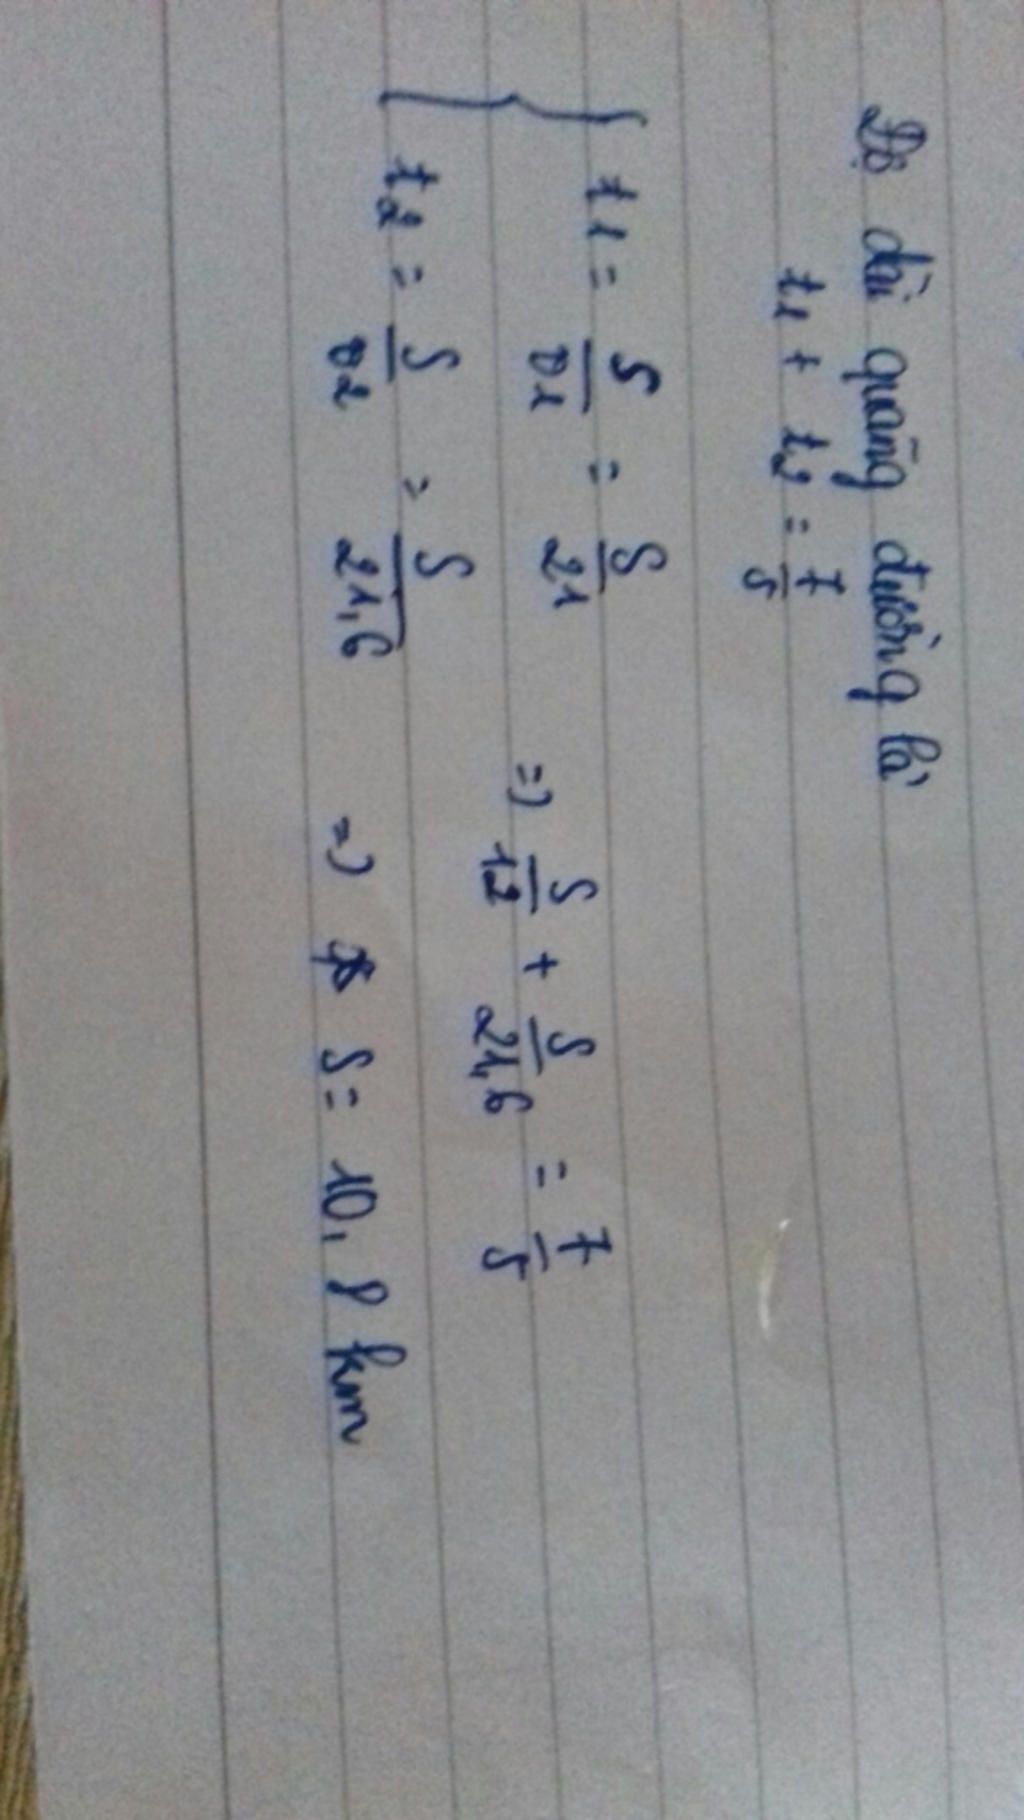 Độ dài quãng đường là
t1 + t2 = 7/5
{ t1 = S/v1 = S/21
t2 = S/v2 = S/21,6
=) S/12 + S/21,6 = 7/5
=) S = 10,8 km